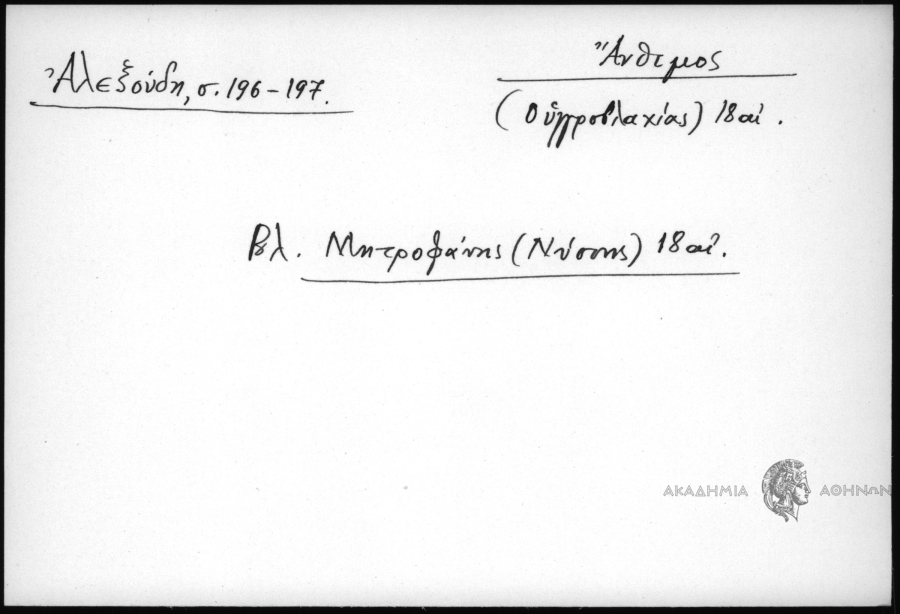 Ἀλεξούδη, σ. 196-197.
Ἄνθιμος
(Οὑγγροβλαχίας) 18 αἰ.
Βλ. Μητροφάνης (Νύσσης) 18 αἰ.
ΑΚΑΔΗΜΙΑ ΑΘΗΝΩΝ